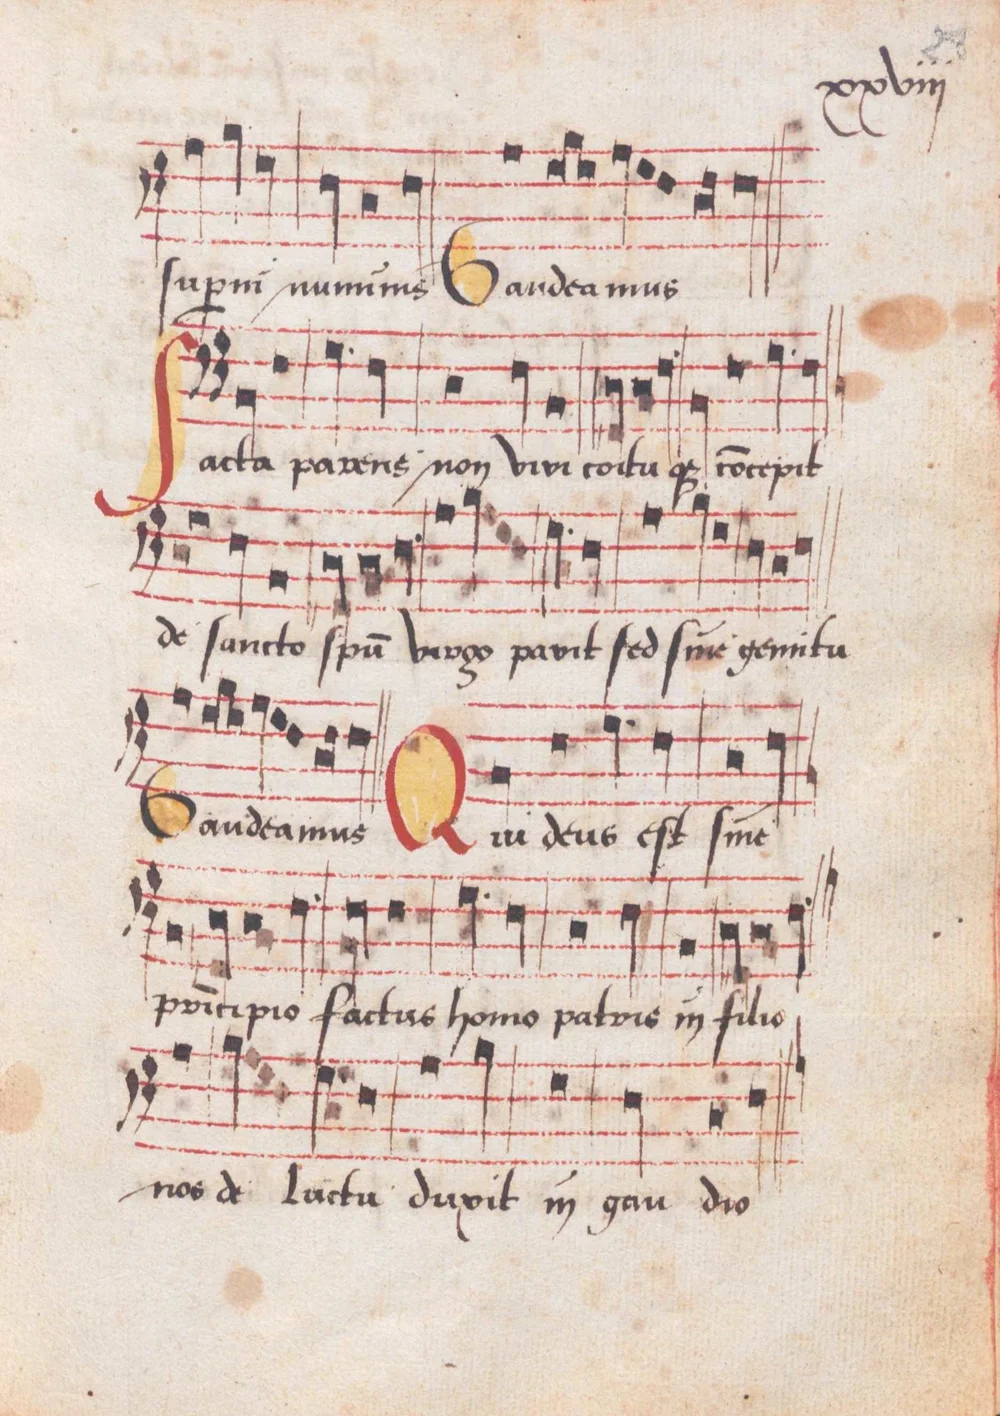 28
xxviij
supni numinis Gaudeamus
Sacta parens non viri coitu qz cōcepit
de sancto spū virgo parit sed sine gemitu
Gaudeamus Qui deus est sine
prīcipio factus homo patris in filio
nos de luctu duxit in gau dio